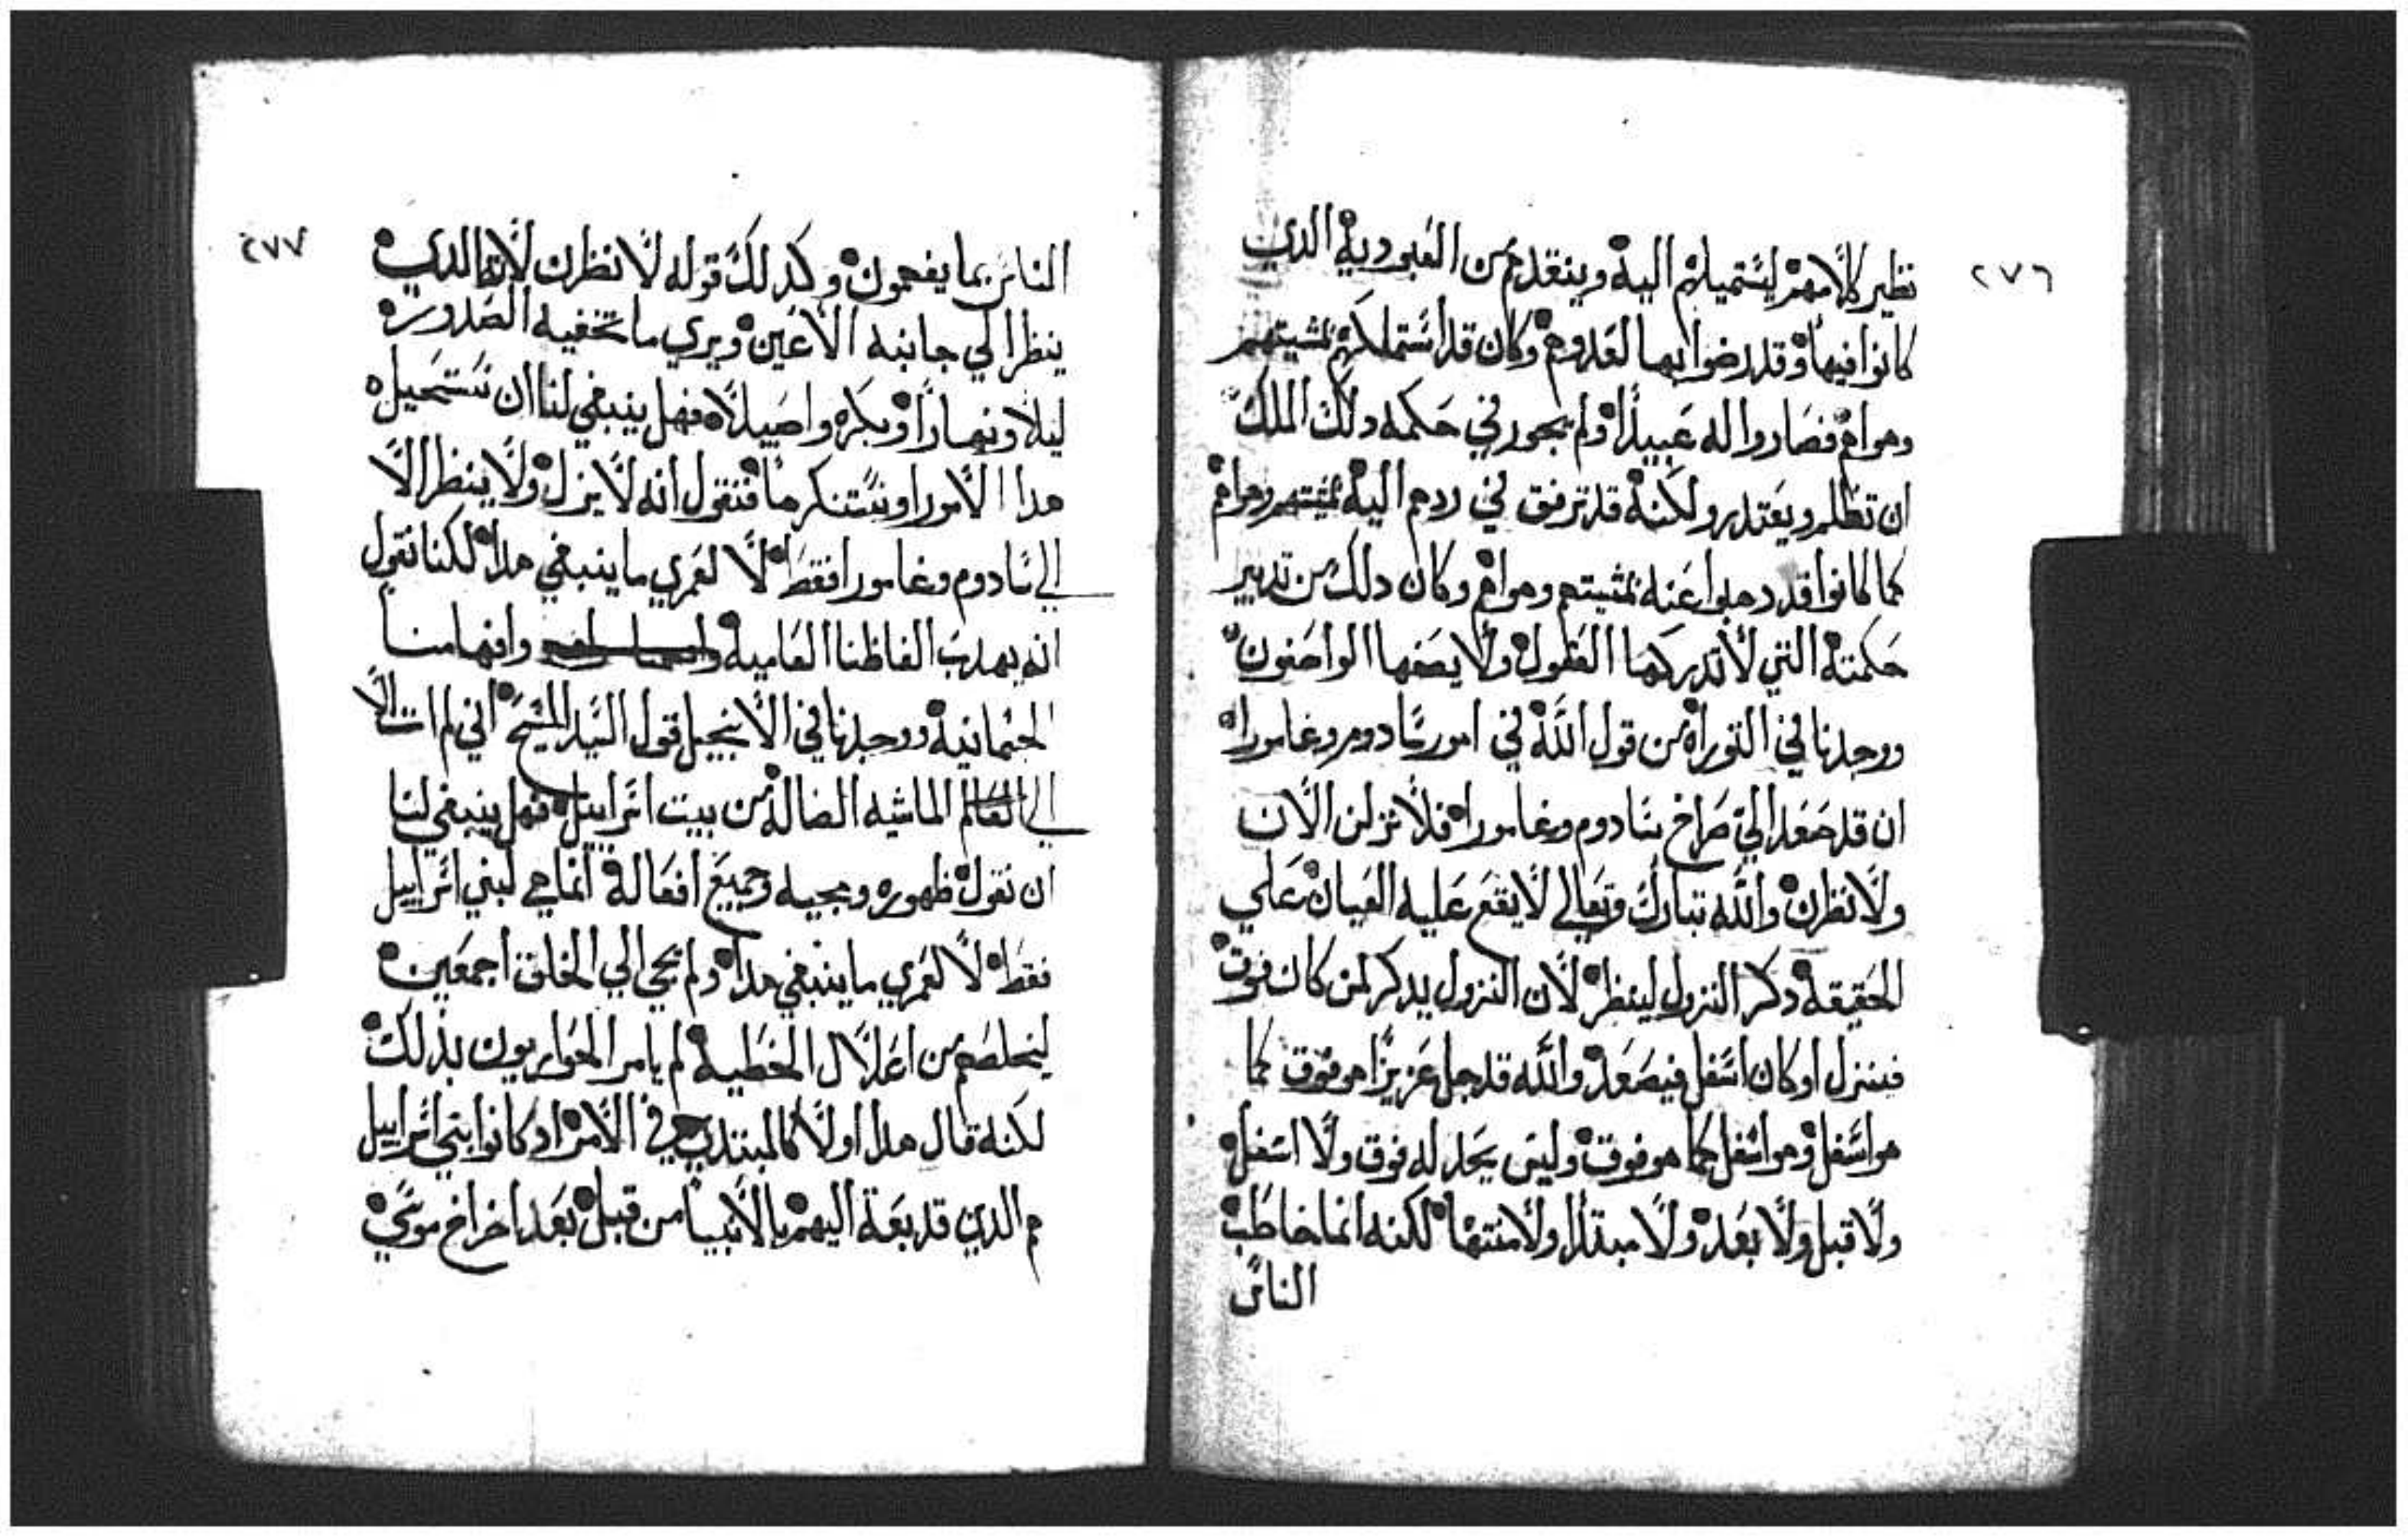 ٢٧٦
نظير كلامهم ليستميلهم اليه وينقدهم من العبودية الدي
كانوا فيها وقد رضوا بها لعدوهم وكان قد استملكهم بمشيتهم
وهواهم فصاروا له عبيدا ولم يجور في حكمه دلك الملك
ان تظلم ويعتدر ولكنه قد ترفق في ردهم اليه بمشيتهم وهواهم
كما كانوا قد دهبوا عنه بمشيتهم وهواهم وكان دلك من تدبير
حكمته التي لا تدركها العقول ولا يصفها الواصفون
ووجدنا في التوراه من قول الله في امور سادوم وغامورا
ان قد صعد الي صراخ سادوم وغامورا فلانزلن الان
ولانظرن والله تبارك وتعالي لا يقع عليه العيان علي
الحقيقه دكر النزول لينظر لان النزول يدكر لمن كان فوق
فينزل او كان اسفل فيصعد والله قد جل عزيزا هو فوق كما
هو اسفل وهو اسفل كما هو فوق وليس يحد له فوق ولا اسفل
ولا قبل ولا بعد ولا مبتدا ولا منتها لكنه انما خاطب
الناس
٢٧٧
الناس بما يفهمون وكدلك قوله لانظرن لانه الدي
ينظر الي جانبه الاعين ويري ما تخفيه الصدور
ليلا ونهارا وبكره واصيلا فهل ينبغي لنا ان نستحيل
هدا الامور او نستنكرها فنقول انه لا ينزل ولا ينظر الا
الي سادوم وغامورا فقط لا لعمري ما ينبغي هدا لكنا نقول
انه يهدب الفاظنا العاميه وافهامنا
الجسمانيه ووجدنا في الانجيل قول السيد المسيح اني لم ات الا
الي الماشيه الضاله من بيت اسراييل فهل ينبغي لنا
ان نقول ظهوره ومجيه وجميع افعاله انما هي لبني اسراييل
فقط لا لعمري ما ينبغي هدا ولم يجي الي الخلق اجمعين
ليخلصهم من اغلال الخطيه لم يامر الحواريون بذلك
لكنه قال هدا اولا كالمبتدي في الامر اد كانوا بني اسراييل
هم الدين قد بعة اليهم بالانبيا من قبل بعد اخراج موسي